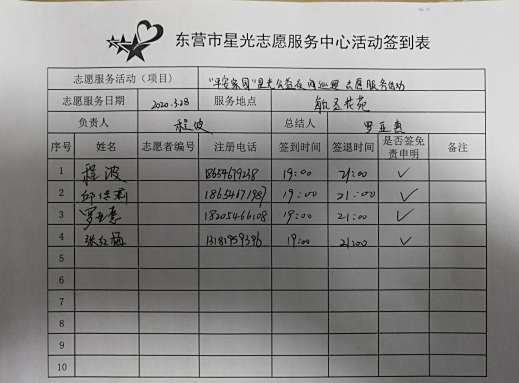 东营市星光志愿服务中心活动签到表
志愿服务活动（项目） "平安家园"星光公益夜间巡逻志愿服务活动
志愿服务日期 2020.3.28 服务地点 花苑
负责人 程波 总结人 罗亚惠
序号 姓名 志愿者编号 注册电话 签到时间 签退时间 是否签免责申明 备注
1 程波 19:00 21:00 ✓
2 19:00 21:00 ✓
3 罗亚惠 18205466108 19:00 21:00 ✓
4 张红梅 19:00 21:00 ✓
5
6
7
8
9
10